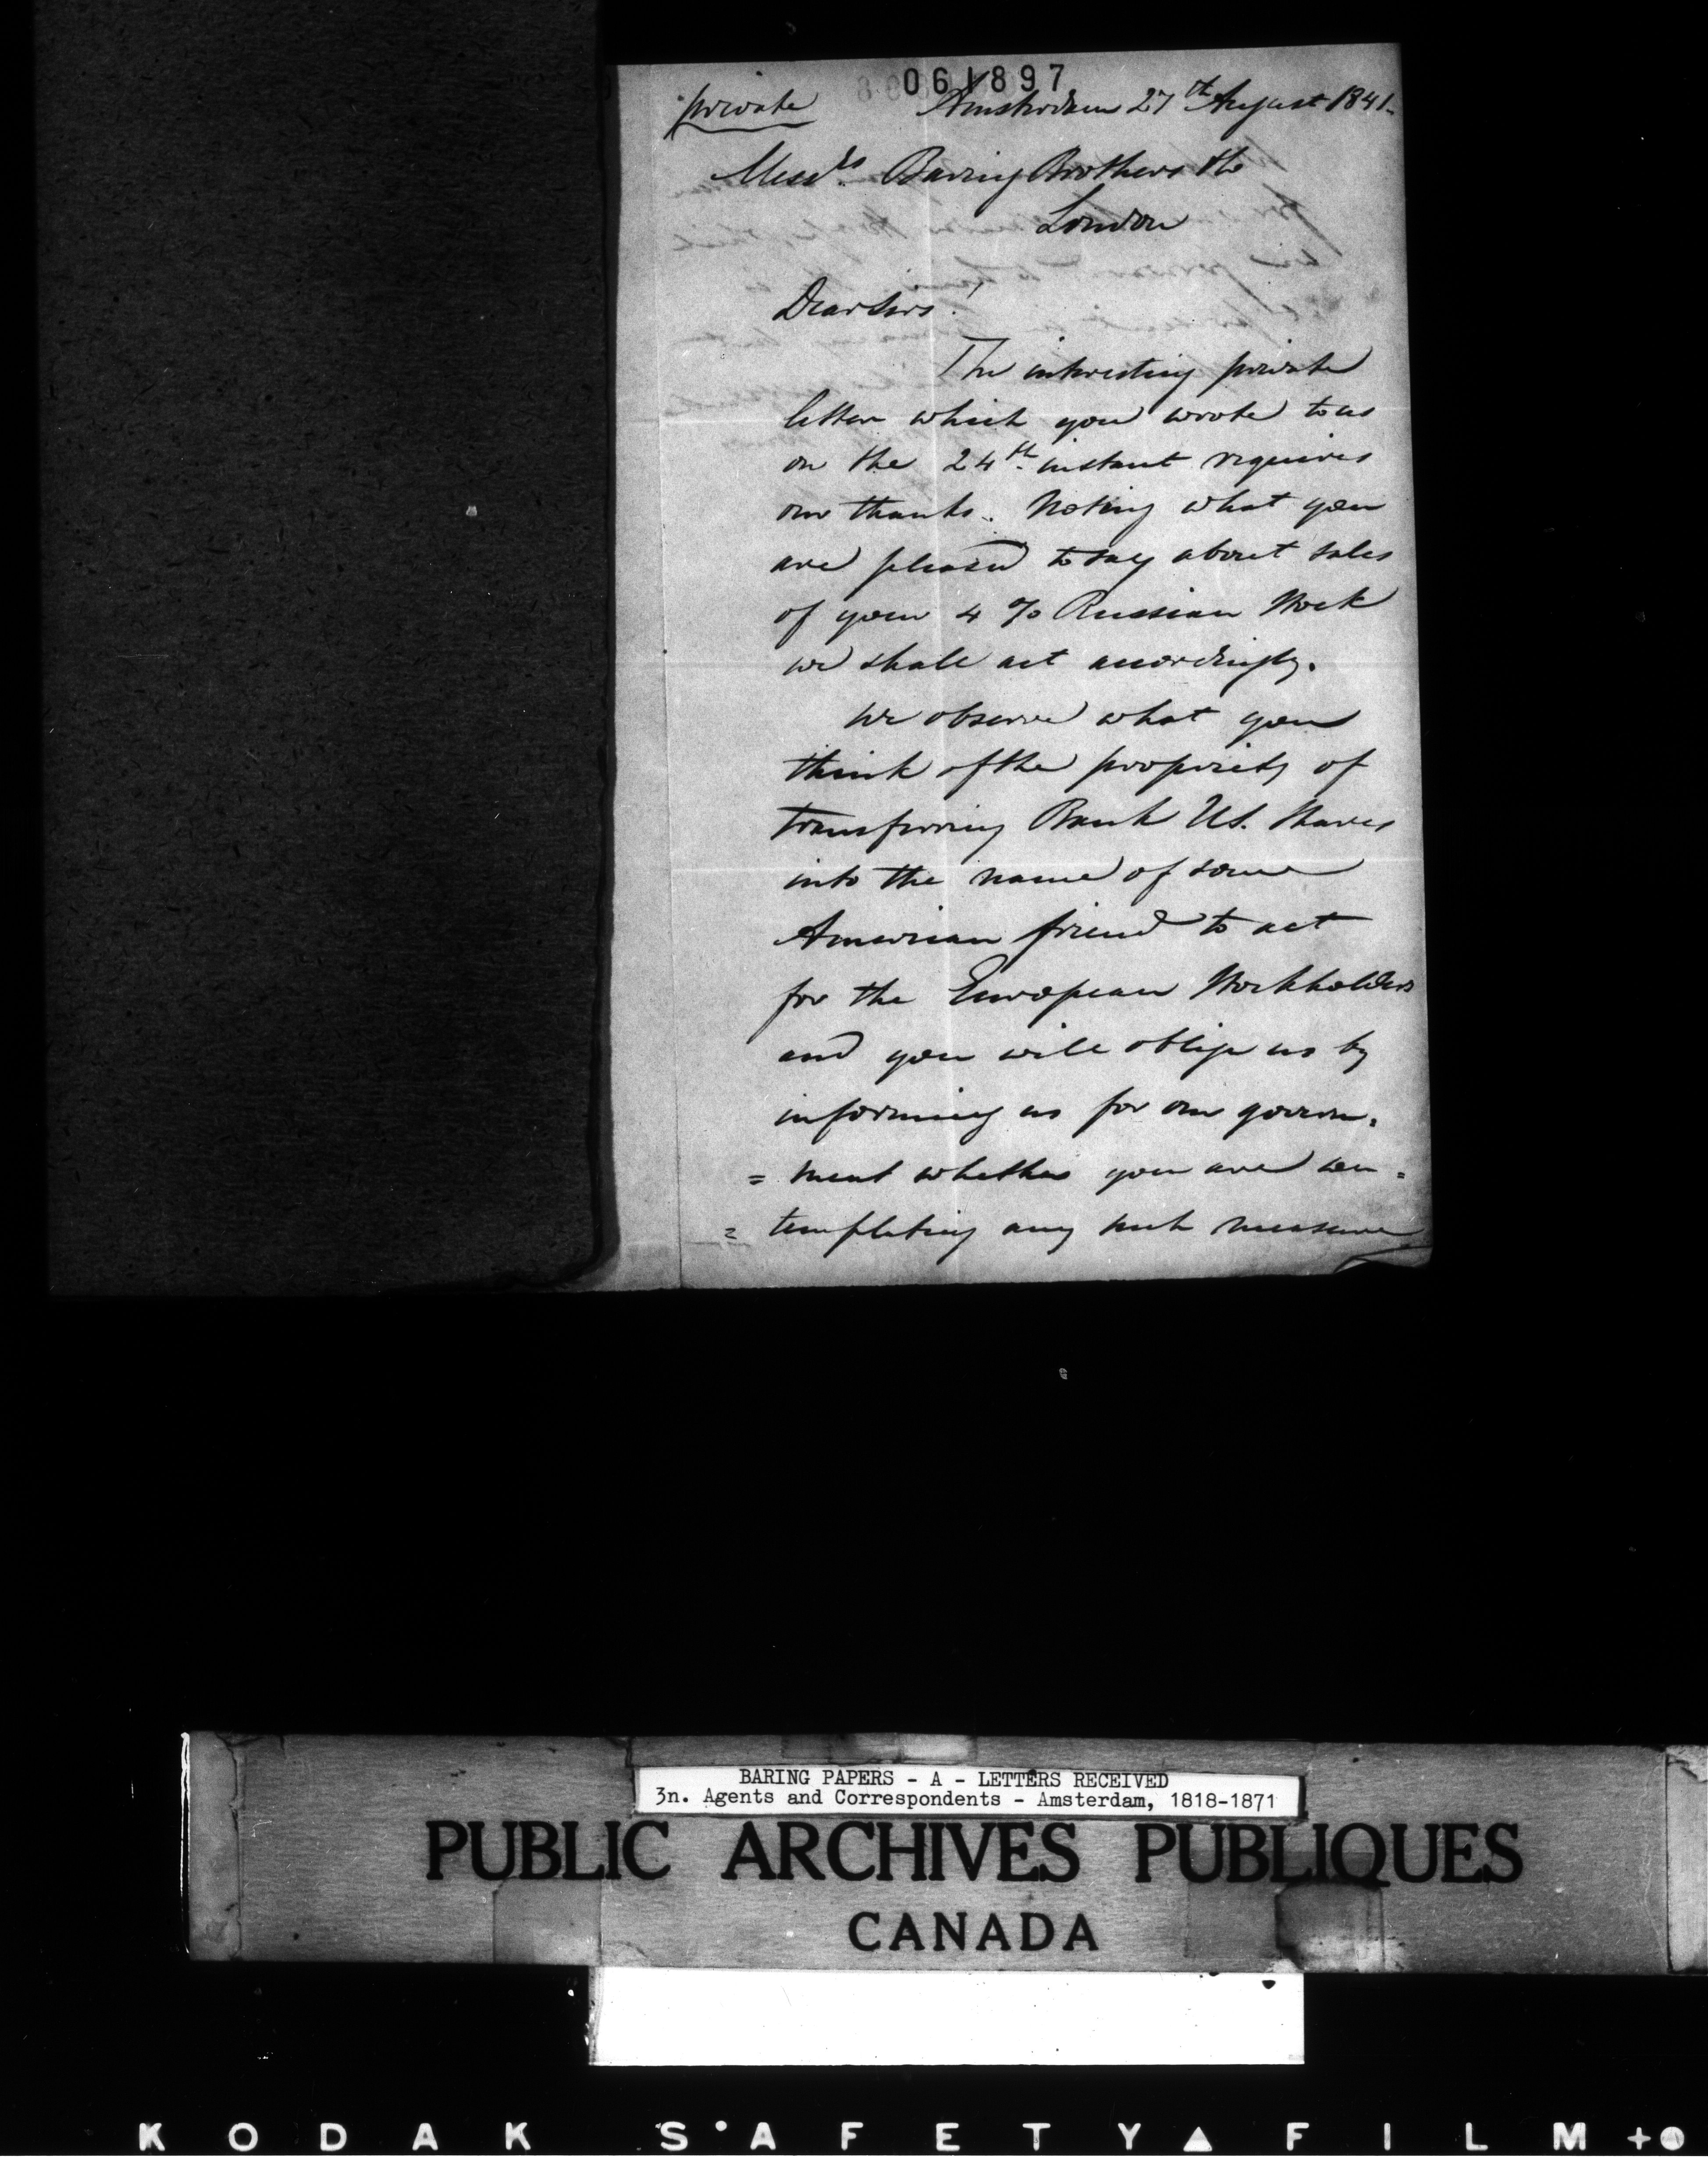 061897
private Amsterdam 27th August 1841.
Messrs. Baring Brothers & Co
London
Dear Sirs!
The interesting private
letter which you wrote to us
on the 24th. instant requires
our thanks. Noting what you
are pleased to say about sales
of your 4 % Russian Stock
we shall act accordingly.
We observe what you
think of the propriety of
transferring Bank US. Shares
into the name of some
American friend to act
for the European Stockholders
and you will oblige us by
informing us for our govern=
=ment whether you are con=
=templating any such measure
BARING PAPERS - A - LETTERS RECEIVED
3n. Agents and Correspondents - Amsterdam, 1818-1871
PUBLIC ARCHIVES PUBLIQUES
CANADA
KODAK SAFETY FILM